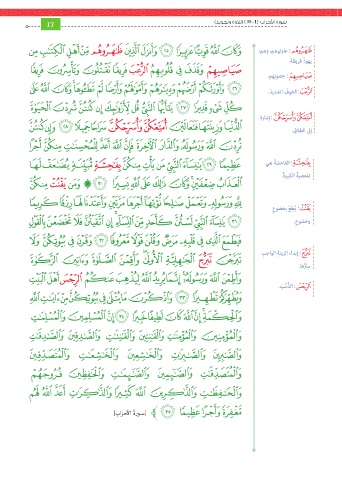 17
وَكَانَ ٱللَّهُ قَوِيًّا عَزِيزًا ٢٥ وَأَنزَلَ ٱلَّذِينَ ظَٰهَرُوهُم مِّنْ أَهْلِ ٱلْكِتَٰبِ مِن
صَيَاصِيهِمْ وَقَذَفَ فِى قُلُوبِهِمُ ٱلرُّعْبَ فَرِيقًا تَقْتُلُونَ وَتَأْسِرُونَ فَرِيقًا
٢٦ وَأَوْرَثَكُمْ أَرْضَهُمْ وَدِيَٰرَهُمْ وَأَمْوَٰلَهُمْ وَأَرْضًا لَّمْ تَطَـُٔوهَا وَكَانَ ٱللَّهُ عَلَىٰ
كُلِّ شَىْءٍ قَدِيرًا ٢٧ يَٰٓأَيُّهَا ٱلنَّبِىُّ قُل لِّأَزْوَٰجِكَ إِن كُنتُنَّ تُرِدْنَ ٱلْحَيَوٰةَ
ٱلدُّنْيَا وَزِينَتَهَا فَتَعَالَيْنَ أُمَتِّعْكُنَّ وَأُسَرِّحْكُنَّ سَرَاحًا جَمِيلًا ٢٨ وَإِن كُنتُنَّ
تُرِدْنَ ٱللَّهَ وَرَسُولَهُۥ وَٱلدَّارَ ٱلْءَاخِرَةَ فَإِنَّ ٱللَّهَ أَعَدَّ لِلْمُحْسِنَٰتِ مِنكُنَّ أَجْرًا
عَظِيمًا ٢٩ يَٰنِسَآءَ ٱلنَّبِىِّ مَن يَأْتِ مِنكُنَّ بِفَٰحِشَةٍ مُّبَيِّنَةٍ يُضَٰعَفْ لَهَا
ٱلْعَذَابُ ضِعْفَيْنِ وَكَانَ ذَٰلِكَ عَلَى ٱللَّهِ يَسِيرًا ٣٠ ۞ وَمَن يَقْنُتْ مِنكُنَّ
لِلَّهِ وَرَسُولِهِۦ وَتَعْمَلْ صَٰلِحًا نُّؤْتِهَآ أَجْرَهَا مَرَّتَيْنِ وَأَعْتَدْنَا لَهَا رِزْقًا كَرِيمًا
٣١ يَٰنِسَآءَ ٱلنَّبِىِّ لَسْتُنَّ كَأَحَدٍ مِّنَ ٱلنِّسَآءِ إِنِ ٱتَّقَيْتُنَّ فَلَا تَخْضَعْنَ بِٱلْقَوْلِ
فَيَطْمَعَ ٱلَّذِى فِى قَلْبِهِۦ مَرَضٌ وَقُلْنَ قَوْلًا مَّعْرُوفًا ٣٢ وَقَرْنَ فِى بُيُوتِكُنَّ وَلَا
تَبَرَّجْنَ تَبَرُّجَ ٱلْجَٰهِلِيَّةِ ٱلْأُولَىٰ وَأَقِمْنَ ٱلصَّلَوٰةَ وَءَاتِينَ ٱلزَّكَوٰةَ
وَأَطِعْنَ ٱللَّهَ وَرَسُولَهُۥٓ إِنَّمَا يُرِيدُ ٱللَّهُ لِيُذْهِبَ عَنكُمُ ٱلرِّجْسَ أَهْلَ ٱلْبَيْتِ
وَيُطَهِّرَكُمْ تَطْهِيرًا ٣٣ وَٱذْكُرْنَ مَا يُتْلَىٰ فِى بُيُوتِكُنَّ مِنْ ءَايَٰتِ ٱللَّهِ
وَٱلْحِكْمَةِ إِنَّ ٱللَّهَ كَانَ لَطِيفًا خَبِيرًا ٣٤ إِنَّ ٱلْمُسْلِمِينَ وَٱلْمُسْلِمَٰتِ
وَٱلْمُؤْمِنِينَ وَٱلْمُؤْمِنَٰتِ وَٱلْقَٰنِتِينَ وَٱلْقَٰنِتَٰتِ وَٱلصَّٰدِقِينَ وَٱلصَّٰدِقَٰتِ
وَٱلصَّٰبِرِينَ وَٱلصَّٰبِرَٰتِ وَٱلْخَٰشِعِينَ وَٱلْخَٰشِعَٰتِ وَٱلْمُتَصَدِّقِينَ
وَٱلْمُتَصَدِّقَٰتِ وَٱلصَّٰٓئِمِينَ وَٱلصَّٰٓئِمَٰتِ وَٱلْحَٰفِظِينَ فُرُوجَهُمْ
وَٱلْحَٰفِظَٰتِ وَٱلذَّٰكِرِينَ ٱللَّهَ كَثِيرًا وَٱلذَّٰكِرَٰتِ أَعَدَّ ٱللَّهُ لَهُم
مَّغْفِرَةً وَأَجْرًا عَظِيمًا ٣٥ ﴾ [سورة الأحزاب]
ظَٰهَرُوهُم
صَيَاصِيهِمْ: حصونهم.
ٱلرُّعْبَ: الخوف الشديد.
أُمَتِّعْكُنَّ وَأُسَرِّحْكُنَّ: إشارة
إلى الطلاق.
بِفَٰحِشَةٍ: الفاحشة هي
المعصية الكبيرة.
يَقْنُتْ: يطع بخضوع
وخشوع.
تَبَرُّجَ: إبداء الزينة الواجب
سترها.
ٱلرِّجْسَ: الذنب.